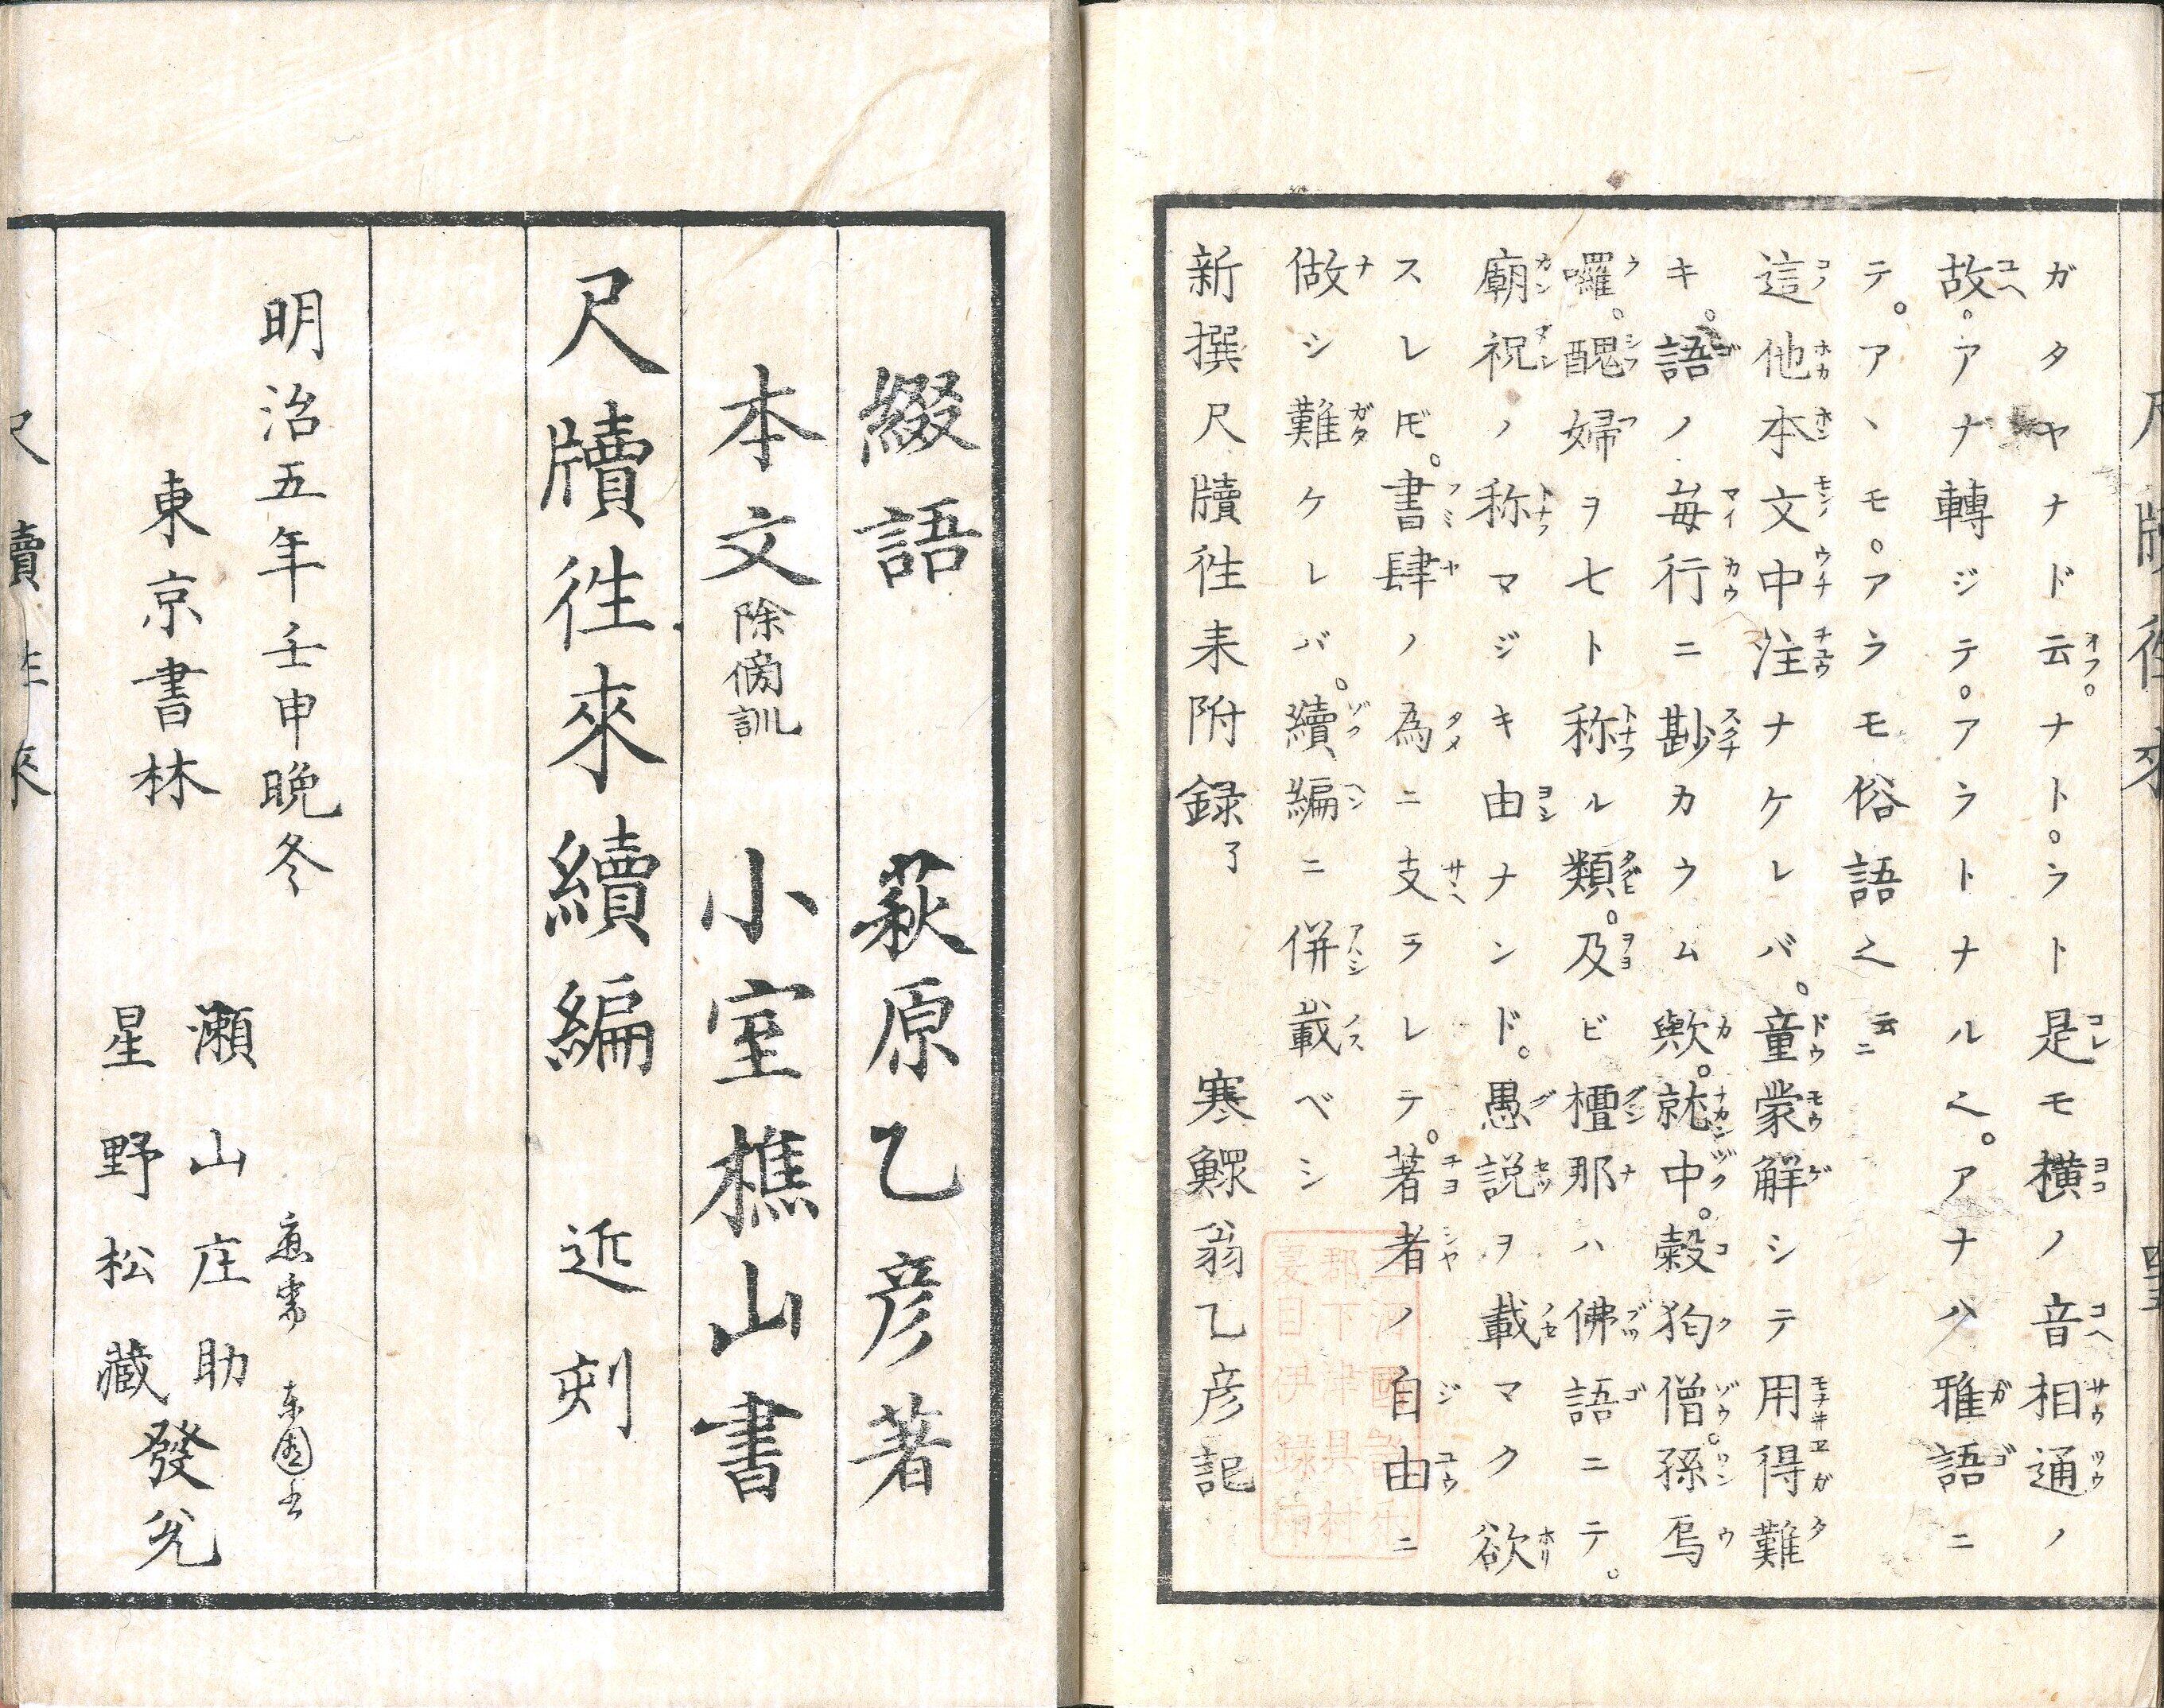 尺牘徃來
四十五
ガタヤナド云。ナト。ラト是モ横ノ音相通ノ
故。アナ轉ジテ。アラトナルヘ。アナハ雅語ニ
テ。アヽモ。アラモ俗語之云ニ
這他本文中注ナケレバ。童蒙解シテ用得難
キ。語ノ毎行ニ尠カウム歟。就中。穀狗僧。孫烏
囉。醜婦ヲ七ト称ル類。及ビ檀那ハ佛語ニテ。
廟祝ノ称マジキ由ナンド。愚説ヲ載マク欲
スレ𪜈。書肆ノ為ニ支ヱラレテ。著者ノ自由ニ
做シ難ケレバ。續編ニ併載ベシ
新撰尺牘徃来附録了 寒鰥翁乙彦記
綴語 萩原乙彦著
本文除傍訓 小室樵山書
尺牘徃來續編 近刻
明治五年壬申晩冬
東京書林
瀬山庄助
星野松藏
發兌
尺牘徃來